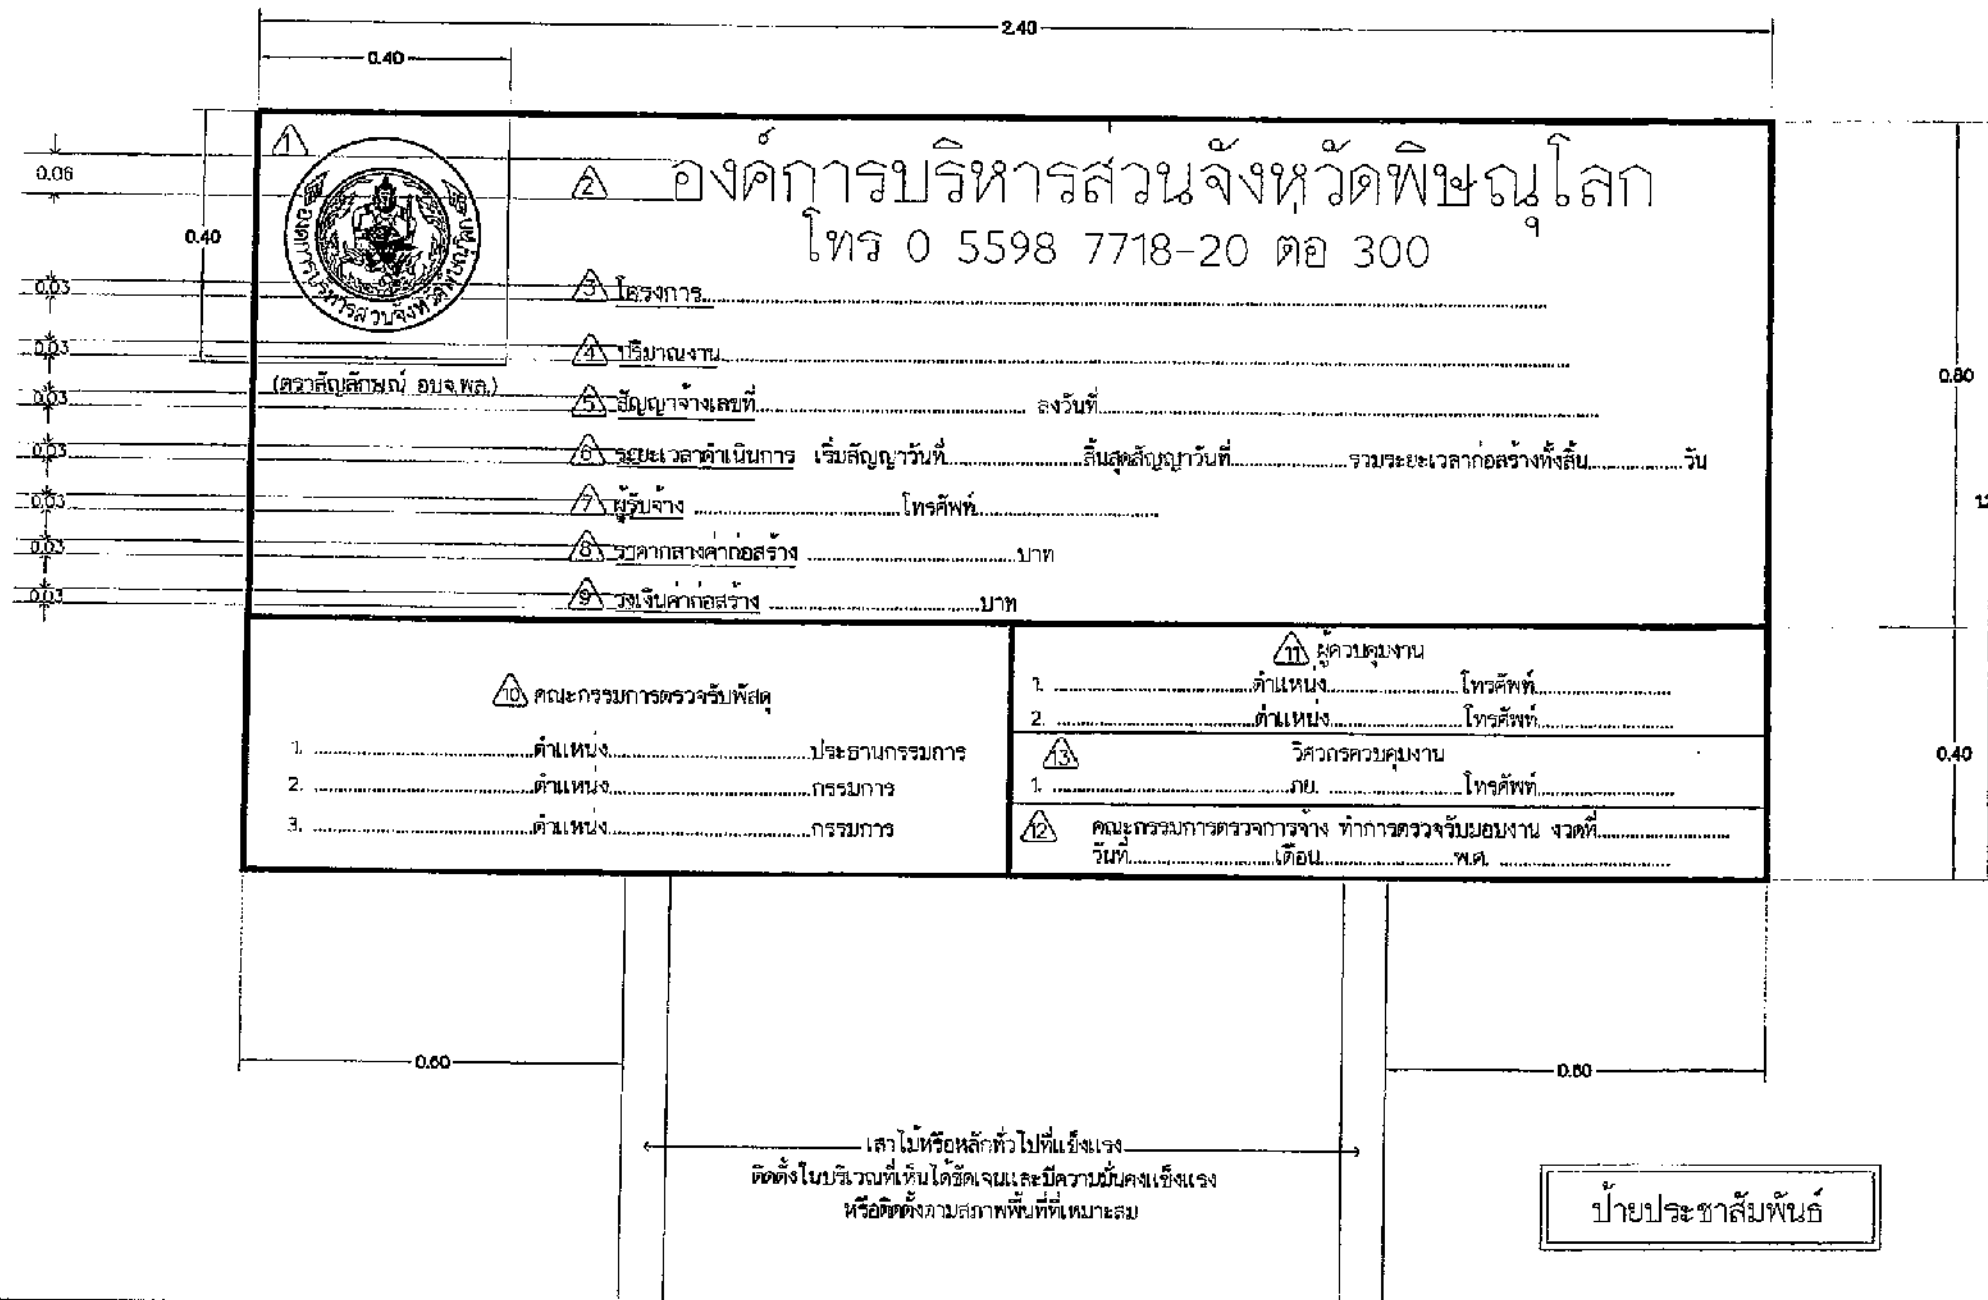 2.40
0.40
1
องค์การบริหารส่วนจังหวัดพิษณุโลก
2 องค์การบริหารส่วนจังหวัดพิษณุโลก
0.06
0.40
โทร 0 5598 7718-20 ต่อ 300
0.03
3 โครงการ
0.03
4 ปริมาณงาน
0.80
(ตราสัญลักษณ์ อบจ.พล.)
0.03
5 สัญญาจ้างเลขที่ ลงวันที่
0.03
6 ระยะเวลาดำเนินการ เริ่มสัญญาวันที่ สิ้นสุดสัญญาวันที่ รวมระยะเวลาก่อสร้างทั้งสิ้น วัน
0.03
7 ผู้รับจ้าง โทรศัพท์
0.03
8 ราคากลางค่าก่อสร้าง บาท
0.03
9 วงเงินค่าก่อสร้าง บาท
10 คณะกรรมการตรวจรับพัสดุ
1. ตำแหน่ง ประธานกรรมการ
2. ตำแหน่ง กรรมการ
3. ตำแหน่ง กรรมการ
11 ผู้ควบคุมงาน
1. ตำแหน่ง โทรศัพท์
2. ตำแหน่ง โทรศัพท์
13 วิศวกรควบคุมงาน
1. ภย. โทรศัพท์
0.40
12 คณะกรรมการตรวจการจ้าง ทำการตรวจรับมอบงาน งวดที่
วันที่ เดือน พ.ศ.
0.60
0.60
เสาไม้หรือหลักทั่วไปที่แข็งแรง
ติดตั้งในบริเวณที่เห็นได้ชัดเจนและมีความมั่นคงแข็งแรง
หรือติดตั้งตามสภาพพื้นที่ที่เหมาะสม
ป้ายประชาสัมพันธ์